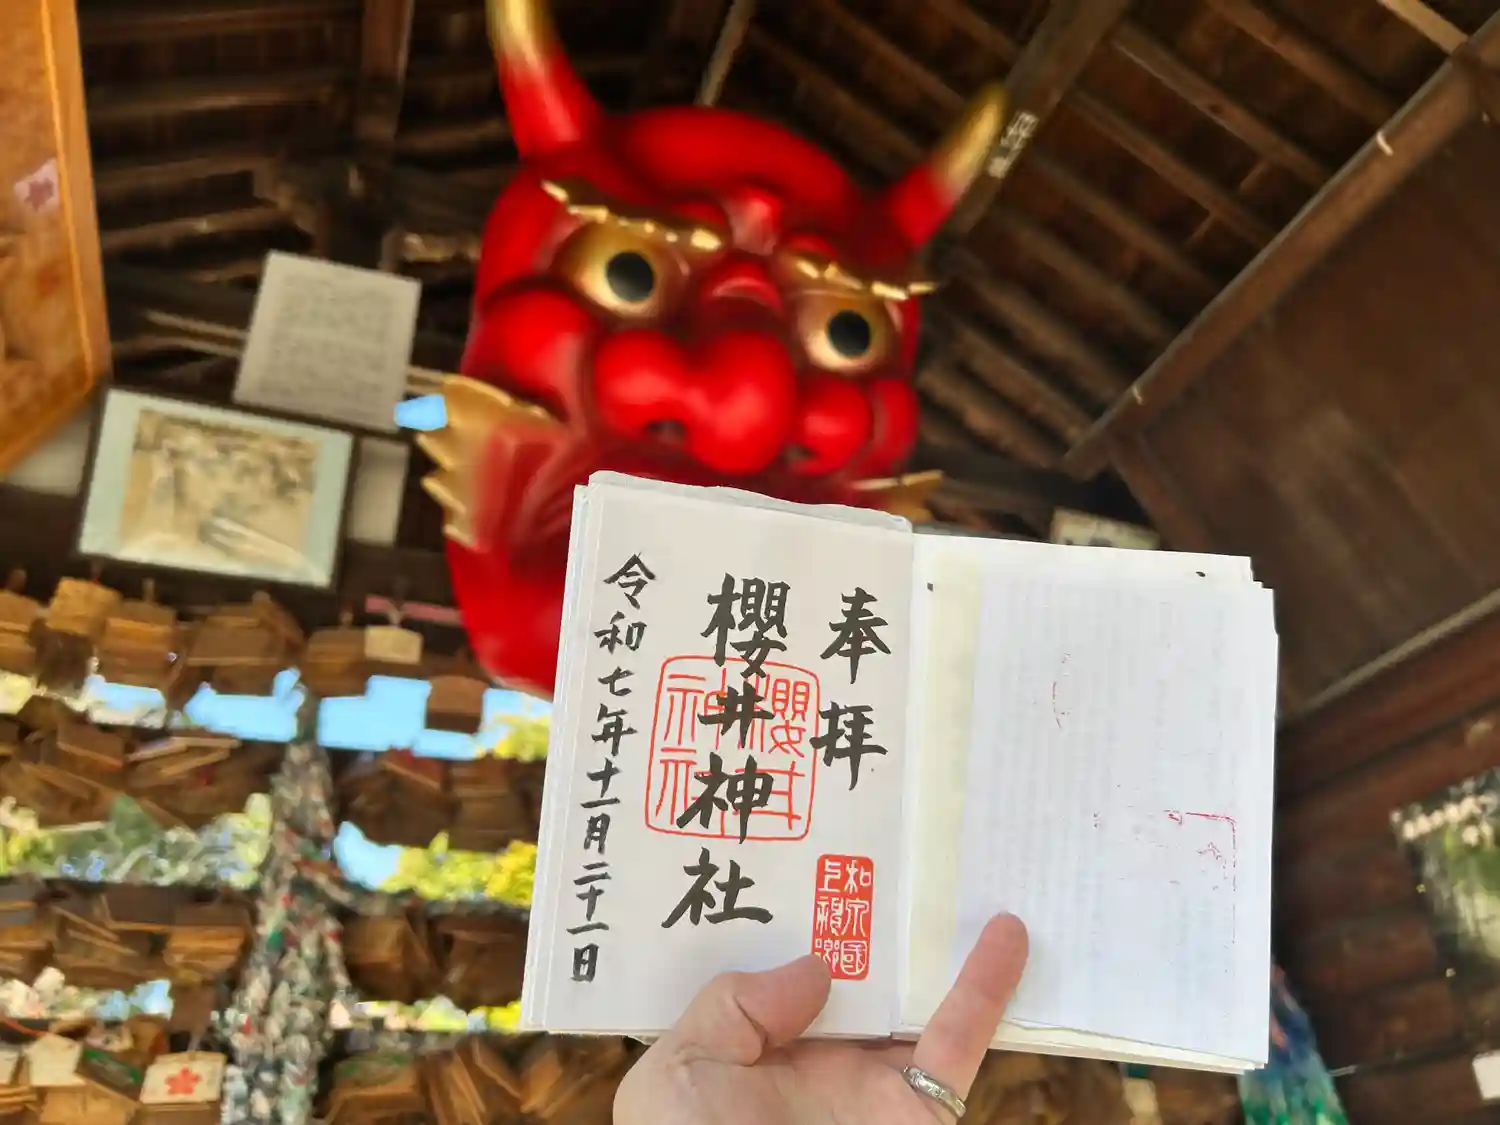 奉拝
櫻井神社
令和七年十一月二十一日
櫻井
神社
和泉国
上神郷